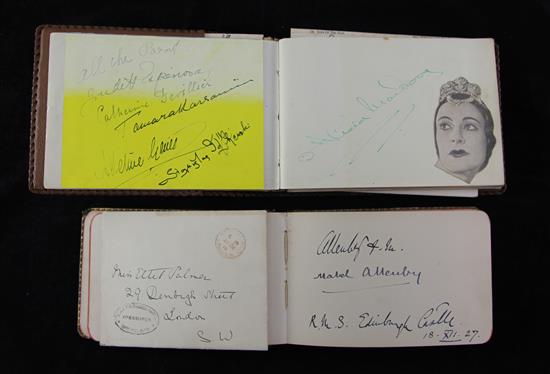 All the Best
Judith Espinosa
Catherine Devillier
Tamara Karsavina
Adeline Genée
Stanislas Idzikowski
Alicia Markova
Miss Ethel Palmer
29 Denbigh Street
London
S W
Allenby F. M.
Mabel Allenby
R M S Edinburgh Castle
18-XI-27.